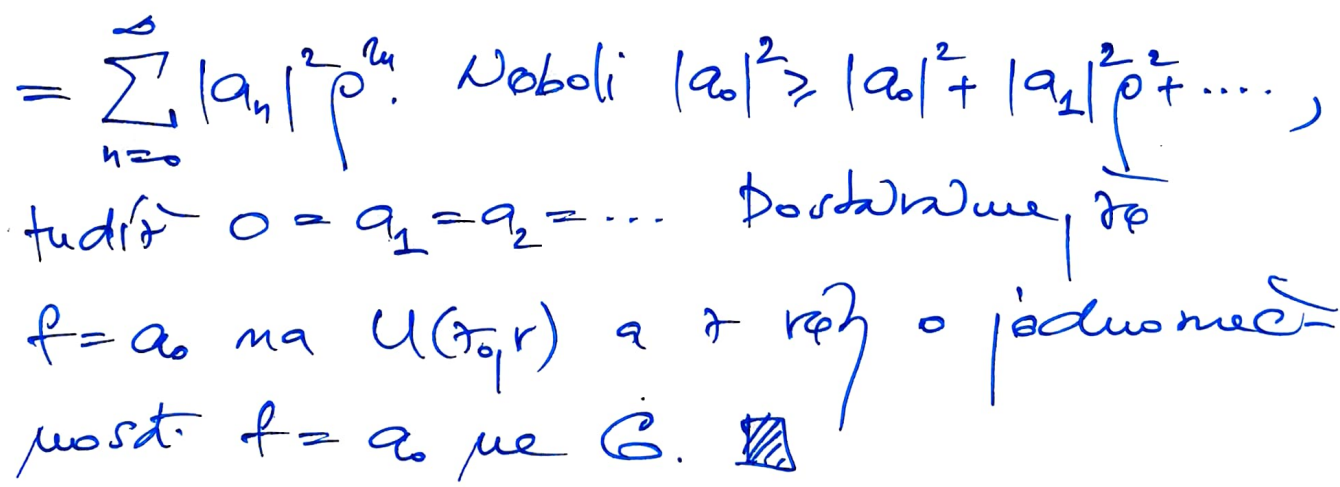 = \sum_{n=0}^{\infty} |a_n|^2 ρ^{2n}. Neboli |a_0|^2 ≥ |a_0|^2 + |a_1|^2 ρ^2 + ....,
tudíž 0 = a_1 = a_2 = ... Dostáváme, že
f = a_0 na U(z_0, r) a z věty o jednoznač-
nosti f = a_0 na G.